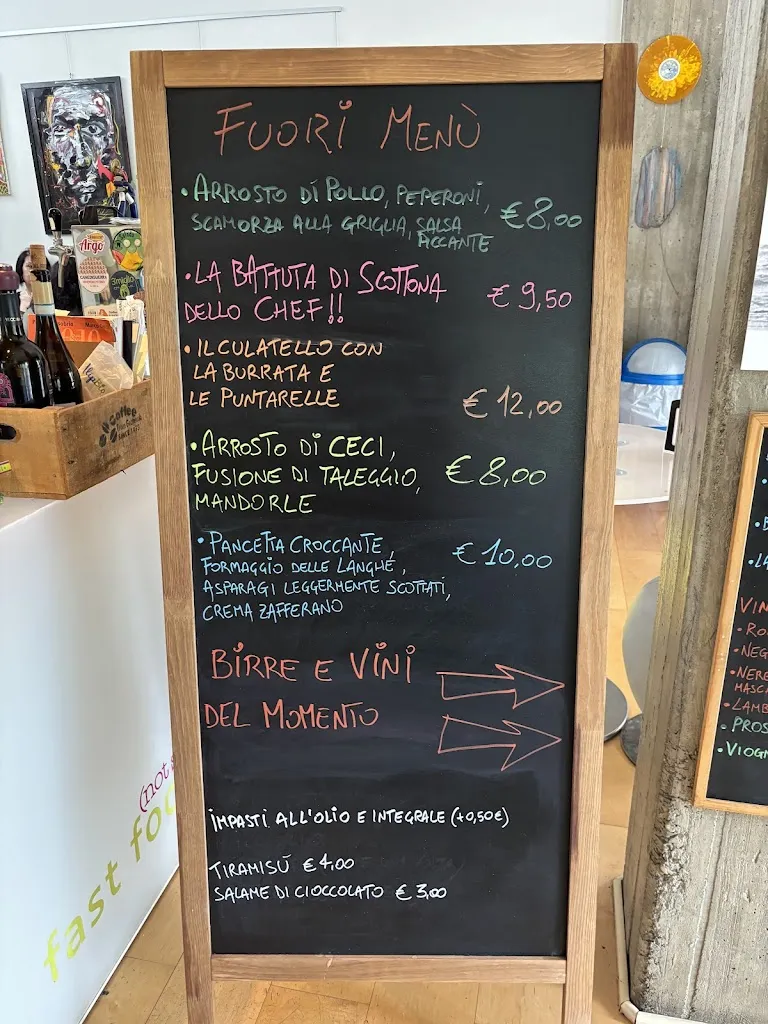 FUORI MENÙ
• ARROSTO DI POLLO, PEPERONI,
SCAMORZA ALLA GRIGLIA, SALSA
PICCANTE
€ 8,00
• LA BATTUTA DI SCOTTONA
DELLO CHEF!!
€ 9,50
• IL CULATELLO CON
LA BURRATA E
LE PUNTARELLE
€ 12,00
• ARROSTO DI CECI,
FUSIONE DI TALEGGIO,
MANDORLE
€ 8,00
• PANCETTA CROCCANTE,
FORMAGGIO DELLE LANGHE,
ASPARAGI LEGGERMENTE SCOTTATI,
CREMA ZAFFERANO
€ 10,00
BIRRE E VINI
DEL MOMENTO
IMPASTI ALL'OLIO E INTEGRALE (+0,50€)
TIRAMISÙ € 4,00
SALAME DI CIOCCOLATO € 3,00
Argo
Coffee
(not
fast foo
VIN
• RO
• NEG
• NERE
MASC
• LAMB
• PROS
• VIOGN